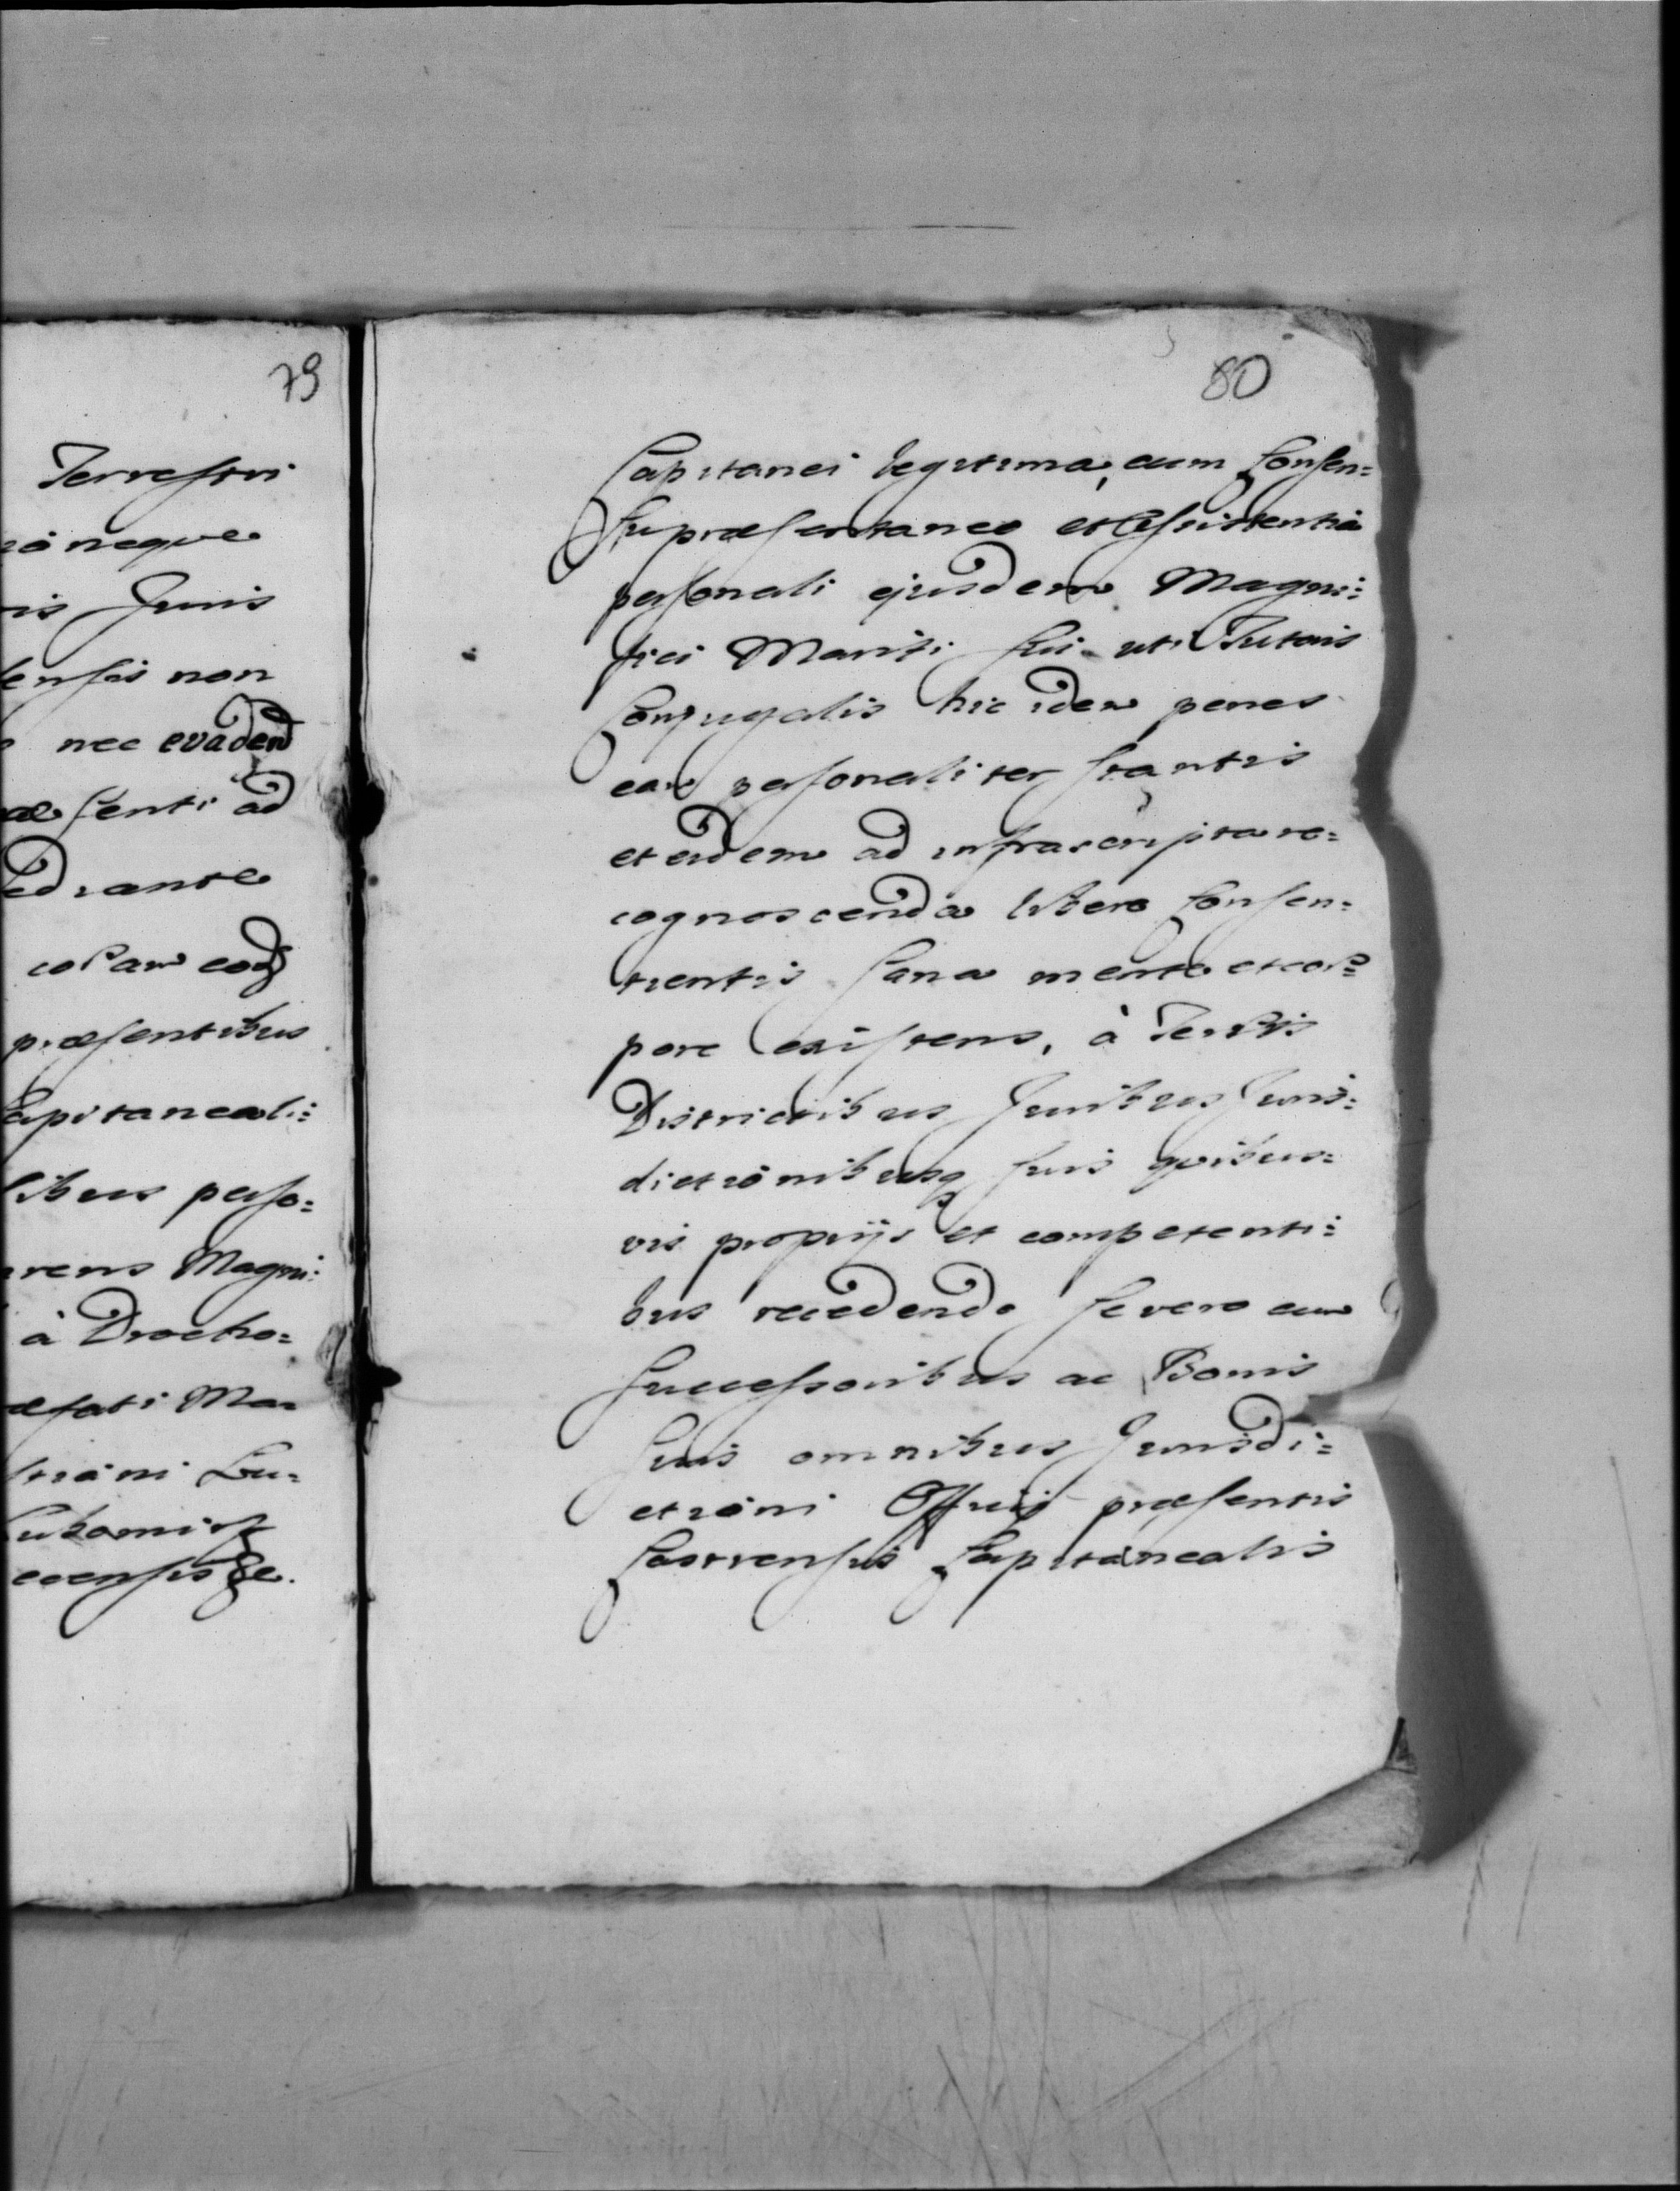 79
Terrestri
neque
Juris
ensis non
nec evadend
æsenti ad
ediante
coram eodq
præsentibus
Capitaneali=
libus perso=
rens Magni:
à Drocho=
æfati Ma=
Lu=
ecensis &c.
80
Capitanei legitima, cum Consen=
su præsentaneo et Assistentia
personali ejusdem Magni=
fici Mariti sui uti Tutoris
Conjugalis hic idem penes
eam personaliter stantis
et eidem ad infrascripta re=
cognoscenda libere Consen=
tientis sana mente et cor=
pore existens, à Terris
Districtibus Juribus Juris=
dictionibusq suis quibus=
vis propriis et competenti=
bus recedendo se vero cum
Successoribus ac Bonis
suis omnibus Jurisdi=
ctioni Officij præsentis
Castrensis Capitanealis